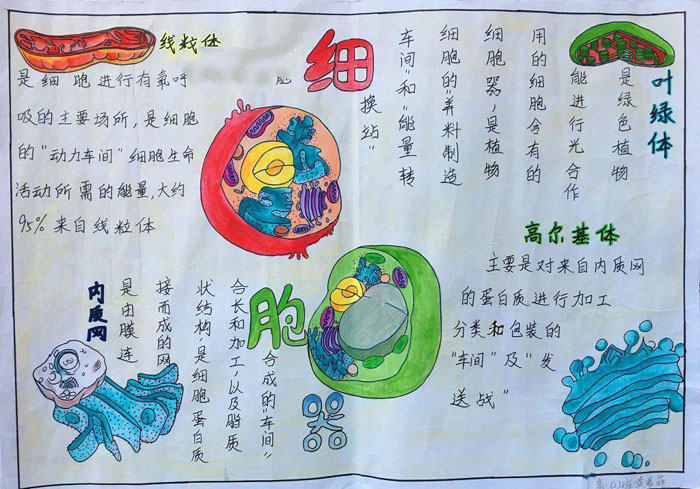 细
胞
器
线粒体
是细胞进行有氧呼
吸的主要场所,是细胞
的"动力车间"细胞生命
活动所需的能量,大约
95%来自线粒体
叶绿体
是绿色植物
能进行光合作
用的细胞含有的
细胞器,是植物
细胞的"养料制造
车间"和"能量转
换站"
内质网
是由膜连
接而成的网
状结构,是细胞蛋白质
合长和加工,以及脂质
合成的"车间"
高尔基体
主要是对来自内质网
的蛋白质进行加工
分类和包装的
"车间"及"发
送战"